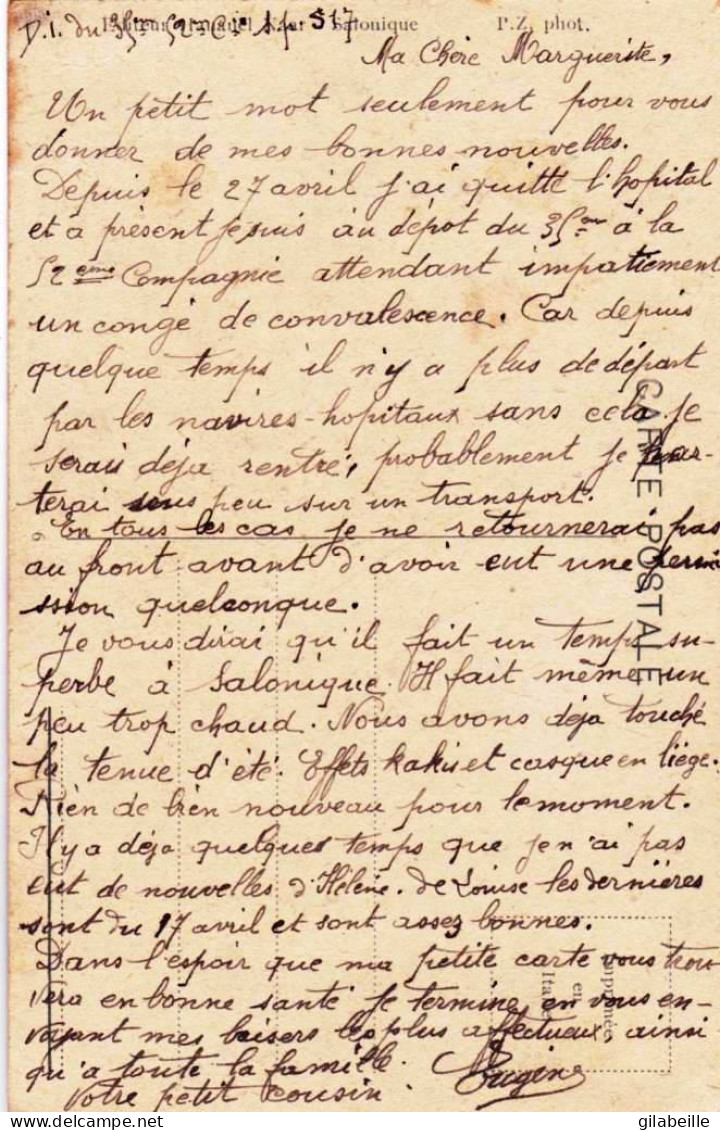 D.I. du 35ème 52ème Cie S.P 517
Salonique P.Z. phot.
Ma Chère Marguerite,
Un petit mot seulement pour vous
donner de mes bonnes nouvelles.
Depuis le 27 avril j'ai quitté l'hopital
et a présent je suis au dépot du 35ème à la
52ème Compagnie attendant impatiement
un congé de convalescence. Car depuis
quelque temps il n'y a plus de départ
par les navires-hopitaux sans cela je
serais déja rentré, probablement je par-
terai sous peu sur un transport.
En tous les cas je ne retournerai pas
au front avant d'avoir eut une permi
ssion quelconque.
Je vous dirai qu'il fait un temps su-
perbe à Salonique. Il fait même un
peu trop chaud. Nous avons déja touché
la tenue d'été. Effets kakis et casque en liége.
Rien de bien nouveau pour le moment.
Il y a déja quelques temps que je n'ai pas
eut de nouvelles d'Hélène. de Louise les dernières
sont du 17 avril et sont assez bonnes.
Dans l'espoir que ma petite carte vous trou
vera en bonne santé je termine en vous en-
voyant mes baisers les plus affectueux ainsi
qu'a toute la famille.
Votre petit cousin.
CARTE POSTALE
Imprimée
en
Italie
gilabeille